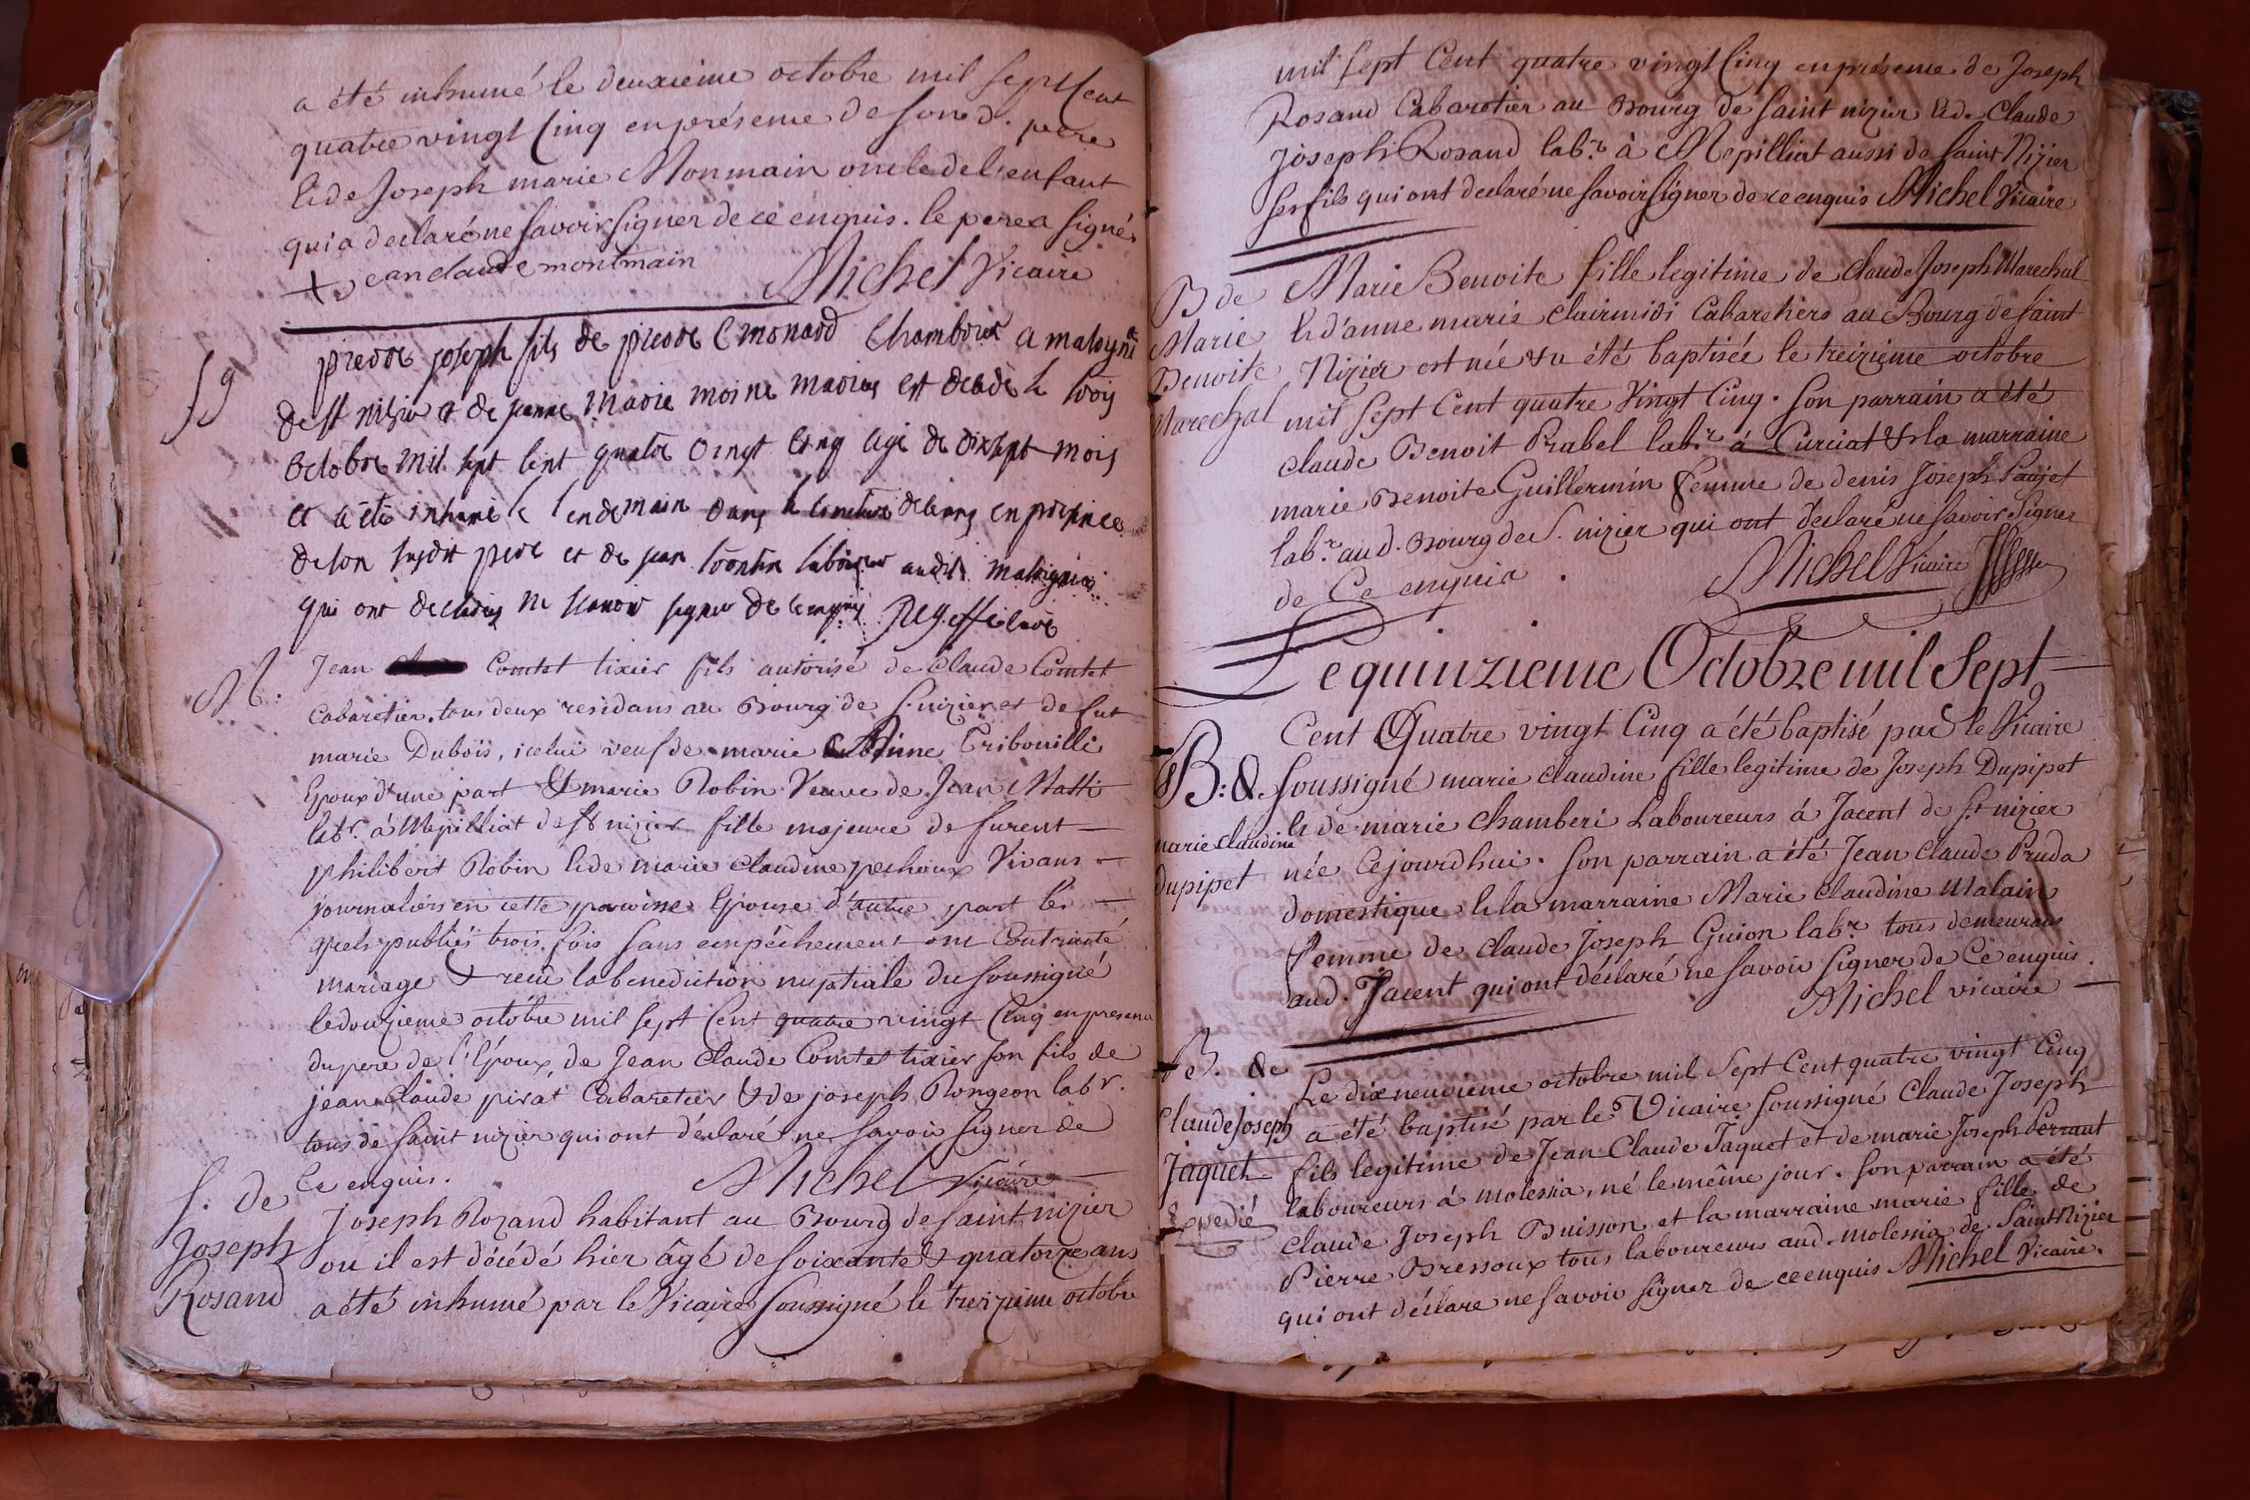 a été inhumé le deuxieme octobre mil sept Cent
quatre vingt Cinq en présence de son d. pere
& de Joseph marie Monmain oncle de l'enfant
qui a declaré ne savoir signer de ce enquis. le pere a signé
jean claude montmain Michel Vicaire
pierre joseph fils de pierre Emonard a matognia
de st nizier et de jeanne marie moine mariés est decedé le trois
octobre mil sept cent quatre vingt cinq agé de dix sept mois
et a été inhumé le lendemain dans le cimetiere de ceans en presence
de son susdit pere et de jean laboureur audit
qui ont declarés ne scavoir signer de ce enquis
M:
Jean Comtet tixier fils autorisé de Claude Comtet
Cabaretier, tous deux residans au Bourg de s. nizier et de fut
marie Dubois, icelui veuf de marie Tribouilli
Epoux d'une part & marie Robin Veuve de Jean
labr. à Mepilliat de st nizier fille majeure de furent
philibert Robin & de marie claudine pechoux Vivans
journaliers en cette paroisse Epouse d'autre part les
quels publiés trois fois sans empêchement ont Contracté
mariage & recu la benediction nuptiale du soussigné
le douzieme octobre mil sept Cent quatre vingt Cinq en presence
du pere de l'Epoux, de Jean Claude Comtet tixier son fils de
jean Claude pirat Cabaretier & de joseph Rongeon labr.
tous de saint nizier qui ont déclaré ne savoir signer de
Ce enquis. Michel Vicaire
S. de
Joseph
Rosand
Joseph Rozand habitant au Bourg de saint nizier
ou il est décédé hier âgé de soixante & quatorze ans
a été inhumé par le Vicaire soussigné le treizieme octobre
mil sept Cent quatre vingt Cinq en présence de Joseph
Rosand Cabaretier au Bourg de saint nizier & de Claude
Joseph Rosand labr. à Mepilliat aussi de saint Nizier
ses fils qui ont declaré ne savoir signer de ce enquis Michel Vicaire
B de
Marie
Benoite
Marechal
Marie Benoite fille legitime de Claude Joseph Marechal
& d'anne marie clairmidi Cabaretiers au Bourg de saint
Nizier est née & a été baptisée le treizieme octobre
mil sept Cent quatre Vingt Cinq. Son parrain a été
claude Benoit Rabel labr. à Curciat & la marraine
marie Benoite Guillermin femme de denis Joseph
labr. aud. Bourg de S. nizier qui ont déclaré ne savoir signer
de Ce enquis. Michel Vicaire
Le quinzieme Octobre mil Sept
Cent Quatre vingt Cinq a été baptisé par le Vicaire
B: &
marie Claudine
Dupipet
soussigné marie claudine fille legitime de Joseph Dupipet
& de marie Chamberi Laboureurs à Jacent de st. nizier
née Cejourdhui. Son parrain a été Jean Claude Pruda
domestique & la marraine Marie Claudine Malain
femme de Claude Joseph Guion labr. tous demeurans
aud. Jacent qui ont déclaré ne savoir signer de Ce enquis.
Michel vicaire
B. de
Claude Joseph
Jaquet
Expedié
Le dix neuvieme octobre mil Sept Cent quatre vingt Cinq
a été baptisé par le Vicaire soussigné Claude Joseph
fils legitime de Jean Claude Jaquet et de marie Joseph Perraut
laboureurs à molessia, né le même jour. Son parrain a été
Claude Joseph Buisson et la marraine marie fille de
Pierre Bressoux tous laboureurs aud. molessia de Saint Nizier
qui ont déclaré ne savoir signer de ce enquis Michel Vicaire.